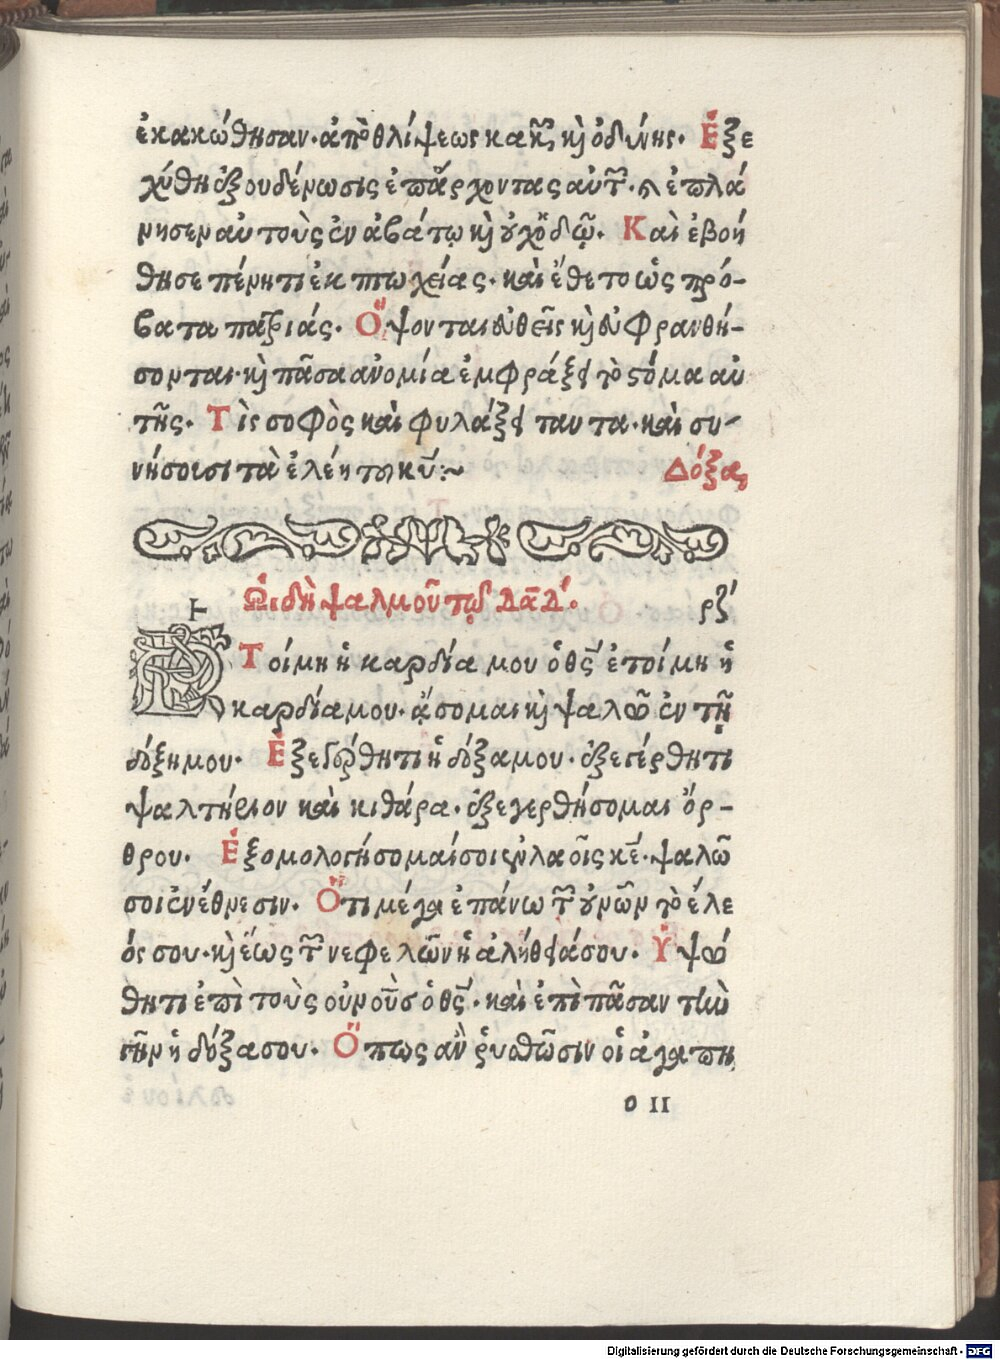 ἐκακώθησαν· ἀπὸ θλίψεως κακῶν, κỳ ὀδύνης· Ἐξε
χύθη ἐξουδένωσις ἐπ' ἄρχοντας αὐτῶν· κỳ ἐπλά
νησεν αὐτοὺς ἐν ἀβάτῳ κỳ οὐχ ὁδῷ· Καὶ ἐβοή
θησε πένητι ἐκ πτωχείας· καὶ ἔθετο ὡς πρό-
βατα πατριάς· Ὄψονται εὐθεῖς κỳ εὐφρανθή-
σονται· κỳ πᾶσα ἀνομία ἐμφράξει τὸ στόμα αὐ
τῆς· Τὶς σοφὸς καὶ φυλάξει ταυτα· καὶ συ-
νήσουσι τὰ ἐλέη τοῦ κυ̅:~ Δόξα,
Ὠιδὴ ψαλμοῦ τῷ Δα̅δ· ρζʹ
Ἑ
Τοίμη ἡ καρδία μου ὁ θς̅ ἑτοίμη ἡ
καρδία μου· ᾄσομαι κỳ ψαλῶ ἐν τῇ
δόξῃ μου· Ἐξεγέρθητι ἡ δόξα μου· ἐξεγέρθητι
ψαλτήριον καὶ κιθάρα· ἐξεγερθήσομαι ὄρ-
θρου· Ἐξομολογήσομαί σοι ἐν λαοῖς κε̅· ψαλῶ
σοι ἐν ἔθνεσιν· Ὅτι μέγα ἐπάνω τῶν οὐνῶν τὸ ἔλε
ός σου· κỳ ἕως τῶν νεφελῶν ἡ ἀλήθειά σου· Ὑψώ
θητι ἐπὶ τοὺς οὐνοὺς ὁ θς̅· καὶ ἐπὶ πᾶσαν τὴν
γῆν ἡ δόξα σου· Ὅπως ἂν ῥυσθῶσιν οἱ ἀγαπη
o II
Digitalisierung gefördert durch die Deutsche Forschungsgemeinschaft - DFG